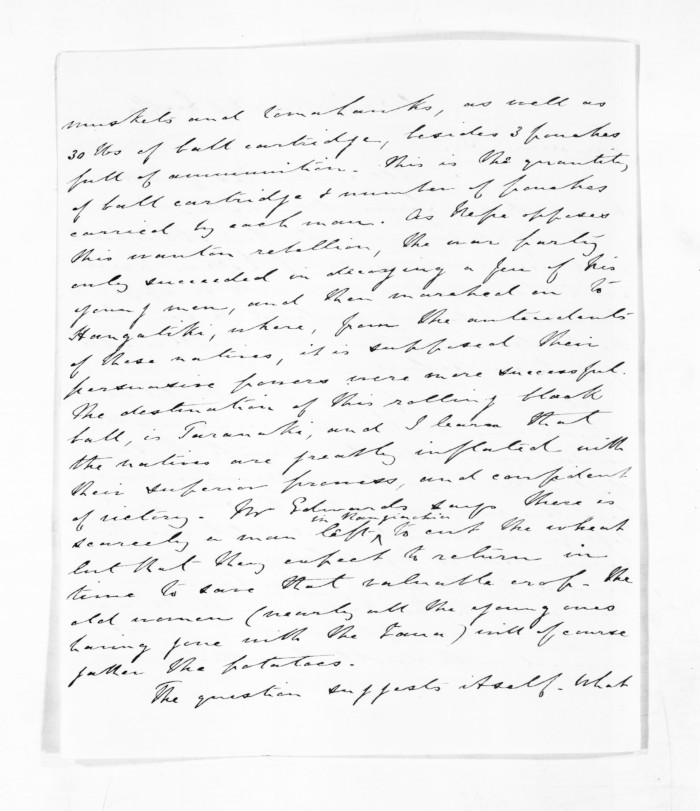 muskets and tomahawks, as well as
30 lbs of ball cartridge, besides 3 pouches
full of ammunition. This is the quantity
of ball cartridge & number of pouches
carried by each man. As Hepa opposes
this wanton rebellion, the war party
only succeeded in decoying a few of his
young men, and then marched on to
Hangatiki, where, from the antecedents
of these natives, it is supposed their
persuasive powers were more successful.
The destination of this rolling black
ball, is Taranaki, and I learn that
the natives are greatly inflated with
their superior prowess, and confident
of victory. Mr Edwards says there is
in Rangiaohia
scarcely a man left to cut the wheat
but that they expect to return in
time to save that valuable crop. The
old women (nearly all the young ones
having gone with the Taua) will of course
gather the potatoes.
The question suggests itself. What